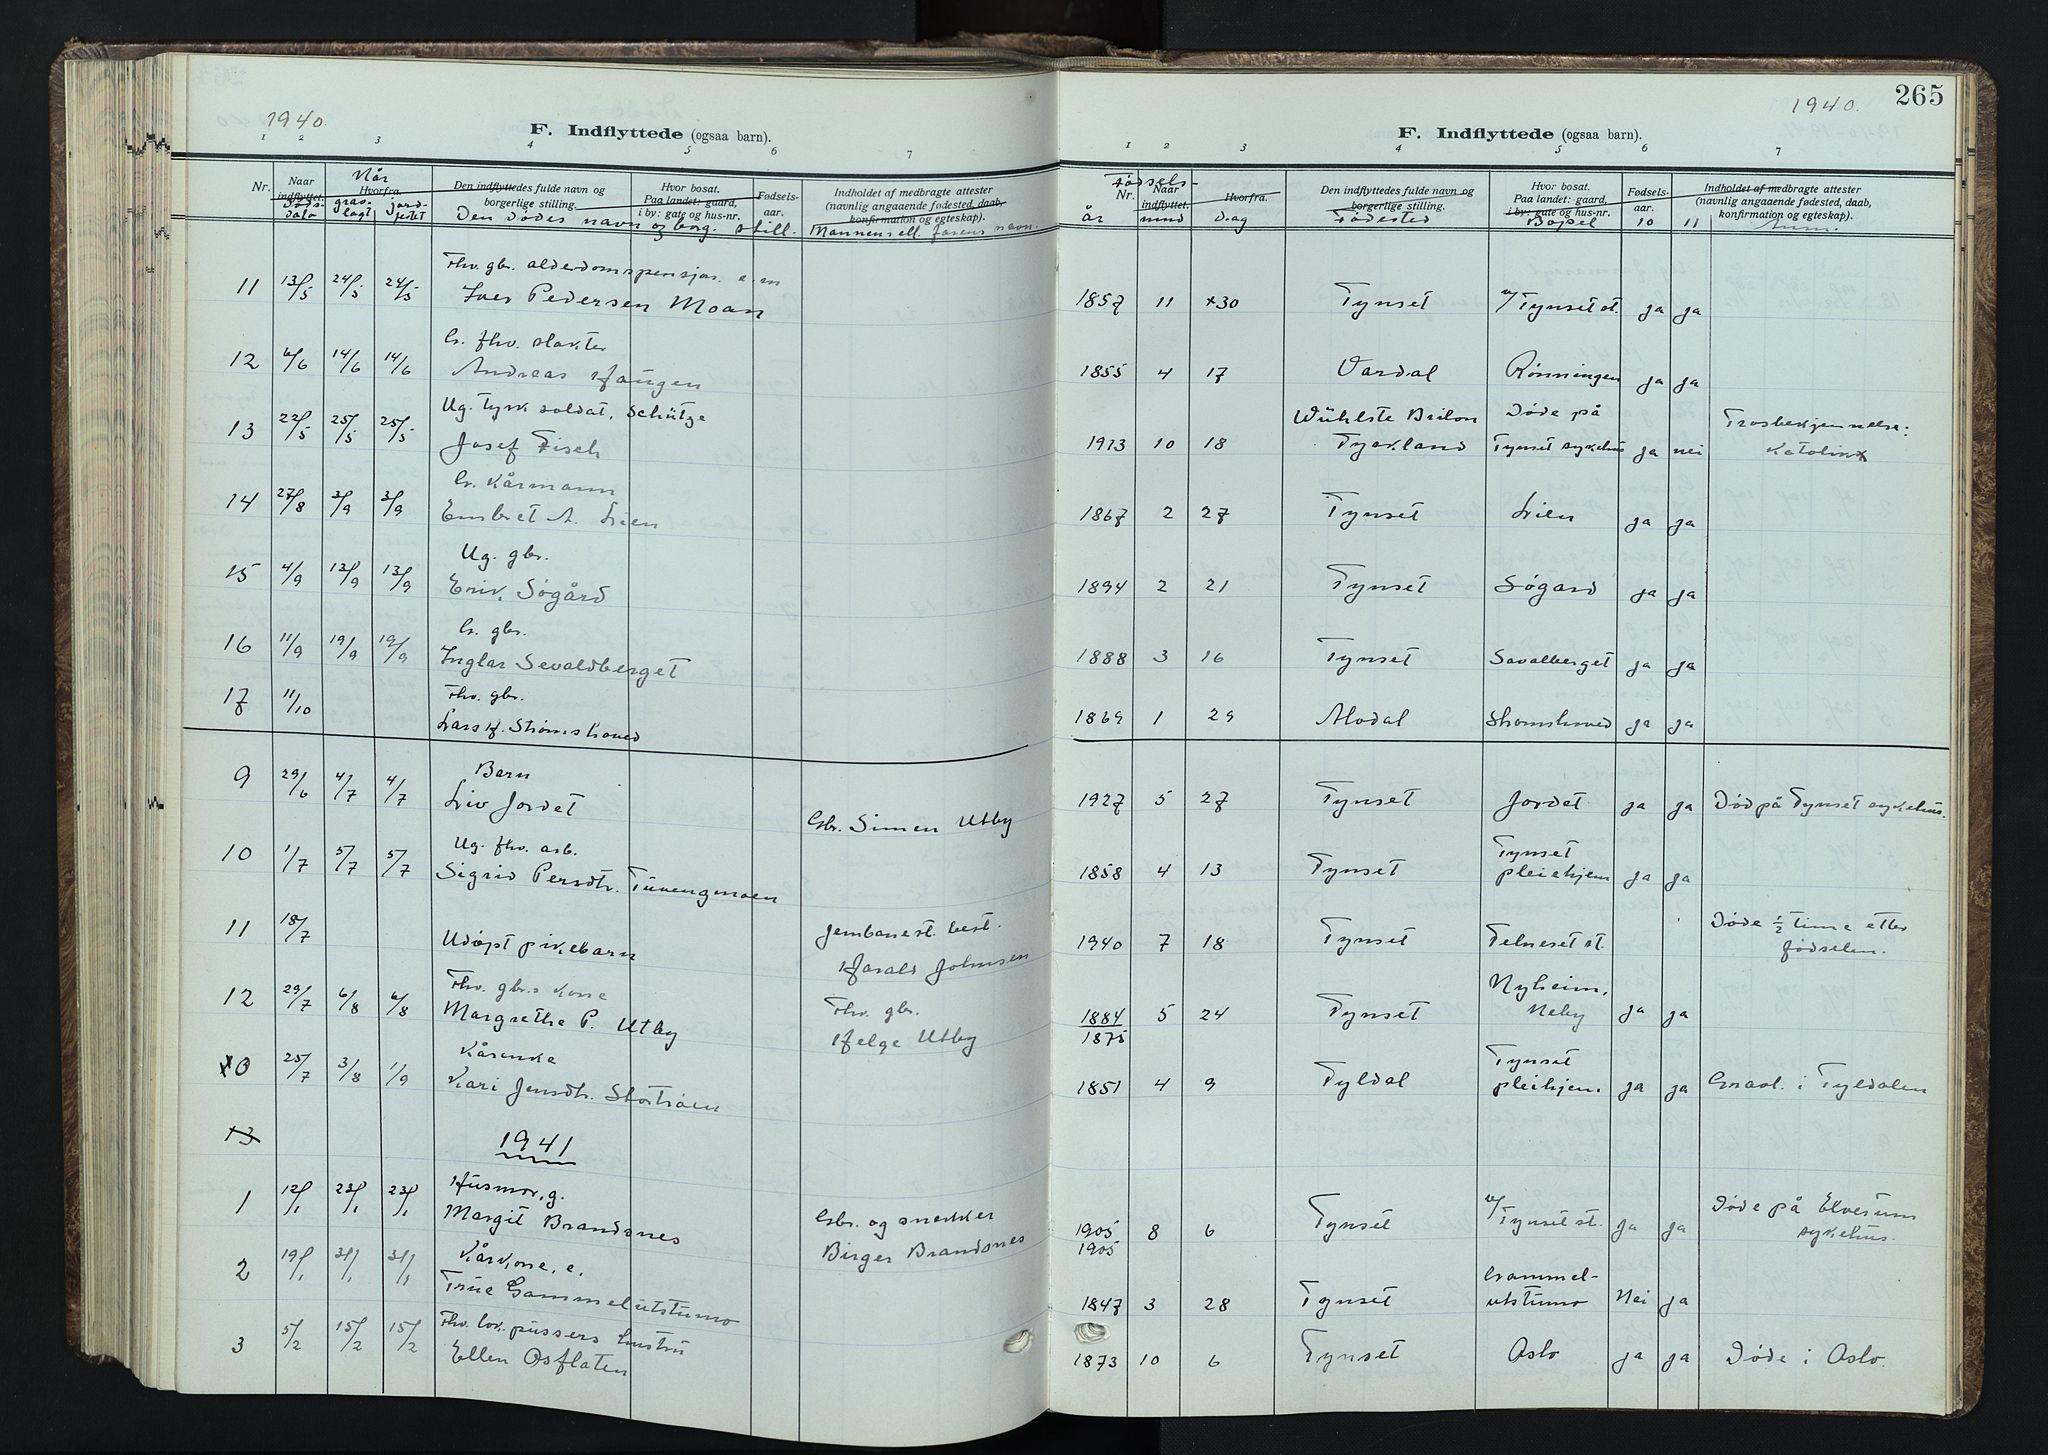 1940.
F. Indflyttede (ogsaa barn).
1 2 3 4 5 6 7
Nr. Naar indflyttet. Hvorfra. Den indflyttedes fulde navn og borgerlige stilling. Hvor bosat. Paa landet: gaard, i by: gate og hus-nr. Fødsels-aar. Indholdet af medbragte attester (navnlig angaaende fødested, daab, konfirmation og egteskap).
Når
Døds-dato grav-lagt jord-festet Den dødes navn og borg. still. Mannens ell. farens navn.
Fhv. gbr. alderdomspensjon. e.m
11 13/5 24/5 24/5 Iver Pedersen Moan
G. fhv. slakter
12 6/6 14/6 14/6 Andreas Haugen
Ug. tysk soldat, Schütze
13 22/5 25/5 25/5 Josef Fisch
G. Kårmann
14 27/8 3/9 3/9 Embret A. Lien
Ug. gbr.
15 4/9 13/9 13/9 Erik Søgård
G. gbr.
16 11/9 19/9 19/9 Inglar Sevaldberget
Fhv. gbr.
17 11/10 Lars H. Strømshoved
Barn
9 29/6 4/7 4/7 Liv Jordet Gbr. Simen Utby
Ug. fhv. arb.
10 1/7 5/7 5/7 Sigrid Persdtr. Tuvengmoen
11 18/7 Udøpt pikebarn Jernbanest. best. Harald Johnsen
Fhv. gbr.s kone
12 29/7 6/8 6/8 Margrethe P. Utby Fhv. gbr. Helge Utby
Kårenke
0 25/7 3/8 1/9 Kari Jensdtr. Stortrøen
13
1941
Husmor, g.
1 12/1 23/1 23/1 Margit Brandsnes Gbr. og snekker Birger Brandsnes
Kårkone, e.
2 19/1 31/1 31/1 True Gammelutstumo
Fhv. lok. pussers hustru
3 5/2 15/2 15/2 Ellen Osflaten
1940.
265
F. Indflyttede (ogsaa barn).
1 2 3 4 5 6 7
Nr. Naar indflyttet. Hvorfra. Den indflyttedes fulde navn og borgerlige stilling. Hvor bosat. Paa landet: gaard, i by: gate og hus-nr. Fødsels-aar. Indholdet af medbragte attester (navnlig angaaende fødested, daab, konfirmation og egteskap).
Fødsels-
år mnd dag Fødested Bopel 10 11 Anm.
1857 11 30 Tynset v/ Tynset st. ja ja
1855 4 17 Vardal Rønningen ja ja
1913 10 18 Wühlste Brilon Tyskland Døde på Tynset sykehus ja nei Trosbekjennelse: Katolikk
1867 2 27 Tynset Lien ja ja
1894 2 21 Tynset Søgard ja ja
1888 3 16 Tynset Savalberget ja ja
1869 1 29 Alvdal Strømshoved ja ja
1927 5 27 Tynset Jordet ja ja Død på Tynset sykehus.
1858 4 13 Tynset Tynset pleiehjem ja ja
1940 7 18 Tynset Telneset st. Døde 1/2 time etter fødselen.
1884 5 24 Tynset Nyheim, Neby ja ja
1875
1851 4 9 Tyldal Tynset pleihjem. ja ja Gravl. i Tyldalen
1905 8 6 Tynset v/ Tynset st. ja ja Døde på Elverum sykehus.
1905
1847 3 28 Tynset Gammel-utstumo Nei ja
1873 10 6 Tynset Oslo ja ja Døde i Oslo.